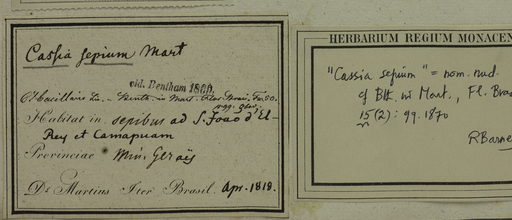 Cassia sepium Mart
vid. Bentham 1869.
in Mart. Flor. Bras.
Habitat in sepibus ad S. João d'El-
Rey et Camapuam
Provinciae Min. Geraës
Dr. Martius Iter Brasil. Apr. 1818.
HERBARIUM REGIUM MONACEN
"Cassia sepium" = nom. nud.
cf Bth. in Mart., Fl. Bras
15(2): 99. 1870
RBarne